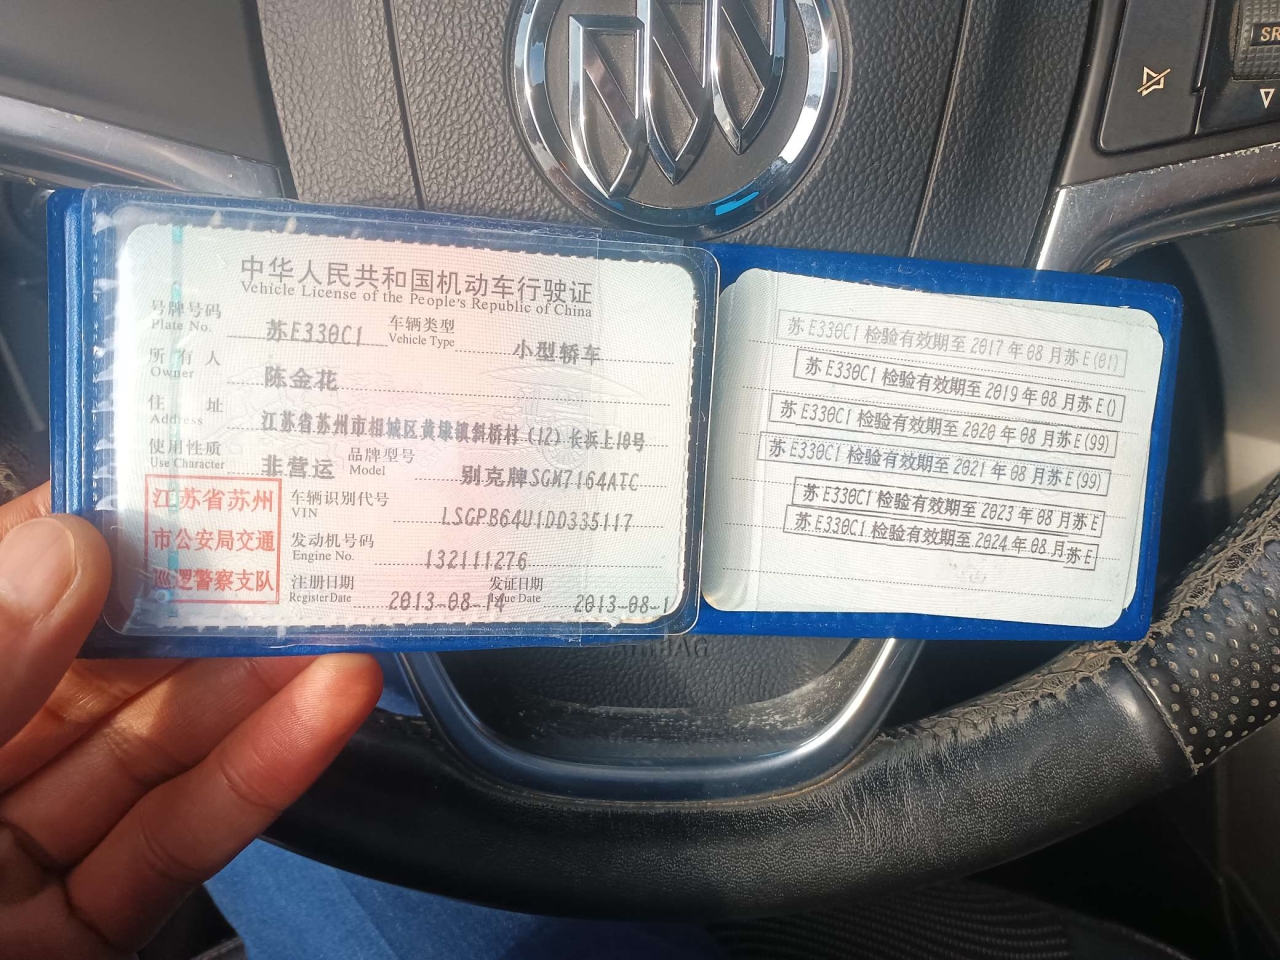 中华人民共和国机动车行驶证
Vehicle License of the People's Republic of China
号牌号码 苏E330C1 车辆类型 小型轿车
Plate No. Vehicle Type
所有人 陈金花
Owner
住址 江苏省苏州市相城区黄埭镇斜桥村(12)长浜上10号
Address
使用性质 非营运 品牌型号 别克牌SGM7164ATC
Use Character Model
江苏省苏州
市公安局交通
巡逻警察支队
车辆识别代号 LSGPB64U1DD335117
VIN
发动机号码 132111276
Engine No.
注册日期 2013-08-14 发证日期 2013-08-1
Register Date Issue Date
苏E330C1检验有效期至2017年08月苏E(01)
苏E330C1检验有效期至2019年08月苏E()
苏E330C1检验有效期至2020年08月苏E(99)
苏E330C1检验有效期至2021年08月苏E(99)
苏E330C1检验有效期至2023年08月苏E
苏E330C1检验有效期至2024年08月苏E
SR